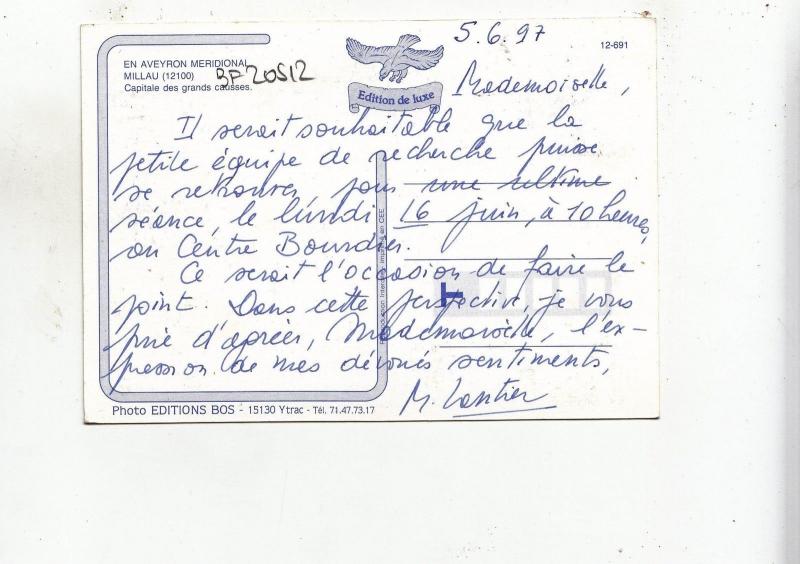 5.6.97
12-691
EN AVEYRON MERIDIONAL
MILLAU (12100)
BF20512
Capitale des grands causses.
Edition de luxe
Mademoiselle,
Il serait souhaitable que la
petite équipe de recherche puisse
se retrouver pour une ultime
séance, le lundi 16 juin, à 10 heures,
au Centre Bourdier.
Ce serait l'occasion de faire le
point. Dans cette perspective, je vous
prie d'agréer, Mademoiselle, l'ex-
pression de mes dévoués sentiments,
M.
Photo EDITIONS BOS - 15130 Ytrac - Tél. 71.47.73.17
imprimé en CEE